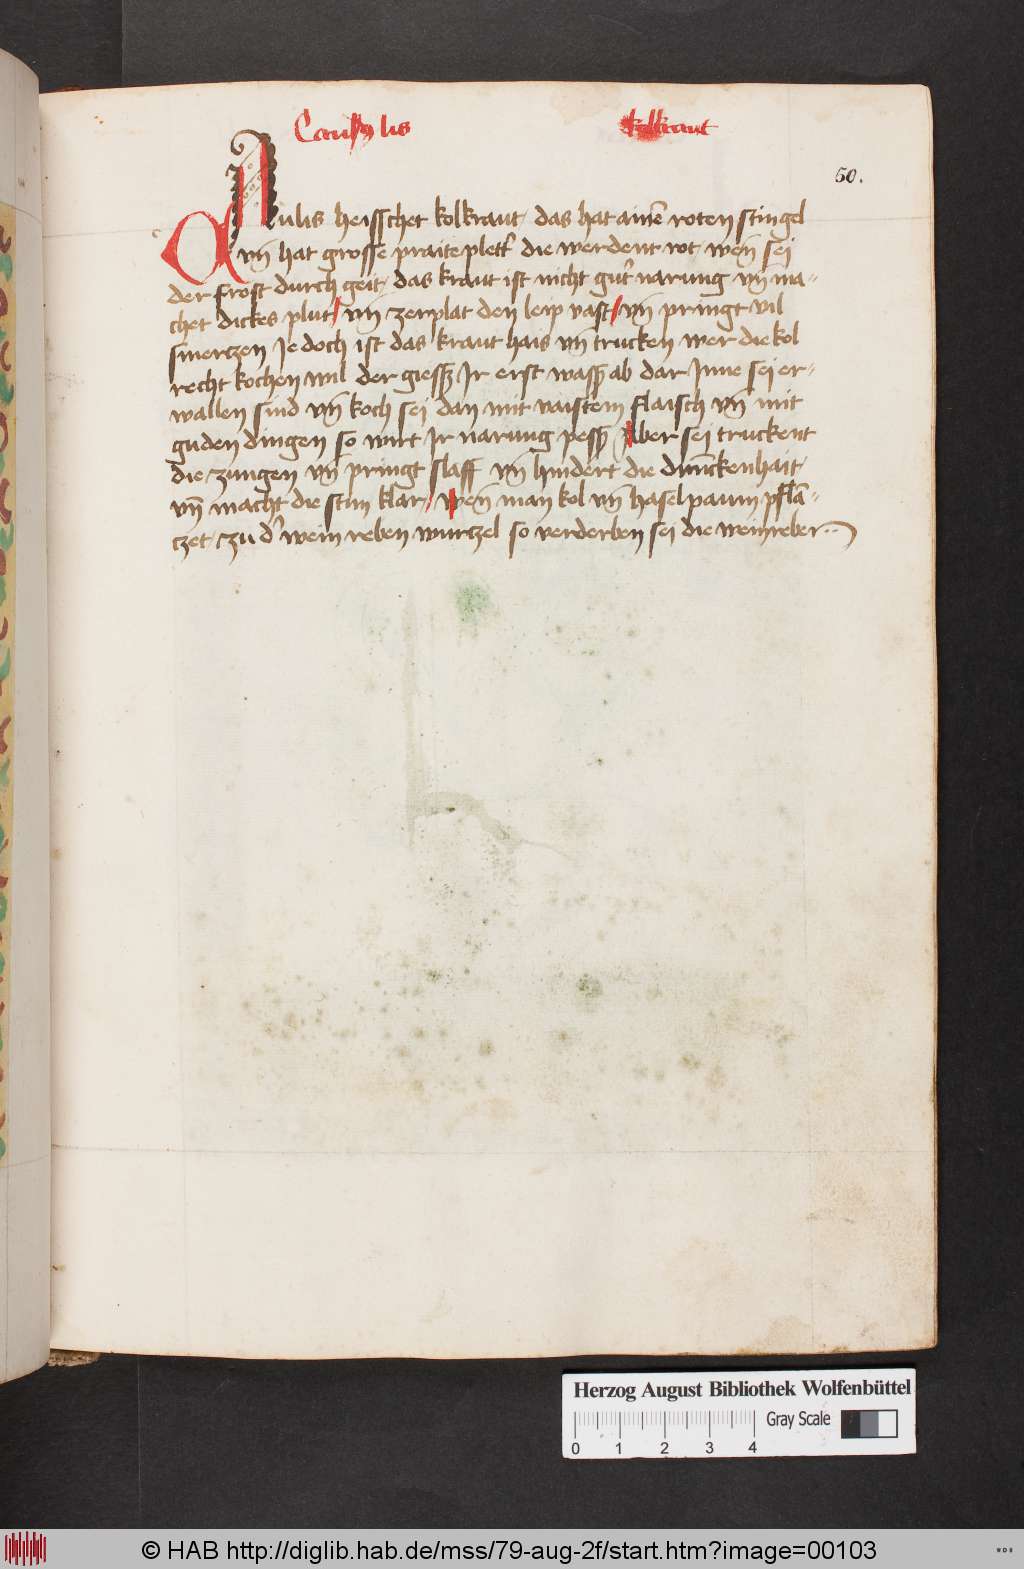 Caulis kolkraut
50.
Aulis heisschet kolkraut das hat ainē roten stingel
vn̄ hat grosse praite plett' die werdent rot wen̄ sei
der frost durch geit, das kraut ist nicht gut' narung vn̄ ma-
chet dickes plut / vn̄ zerplat den leip vast / vn̄ pringt vil
smerczen Je doch ist das kraut hais vn̄ trucken wer die kol
recht kochen wil der giess Jr erst wass' ab dar Jnne sei er-
wallen sind vn̄ koch sei dan mit vaistem flaisch vn̄ mit
guden dingen so wirt Jr narung pess' Aber sei truckent
die zungen vn̄ pringt slaff vn̄ hindert die drunckenhait
vn̄ macht die stim klar / wen̄ man kol vn̄ haselpaum pflā-
czet czu d' wein reben wurczel so verderben sei die weinreber
Herzog August Bibliothek Wolfenbüttel
Gray Scale
0 1 2 3 4
© HAB http://diglib.hab.de/mss/79-aug-2f/start.htm?image=00103